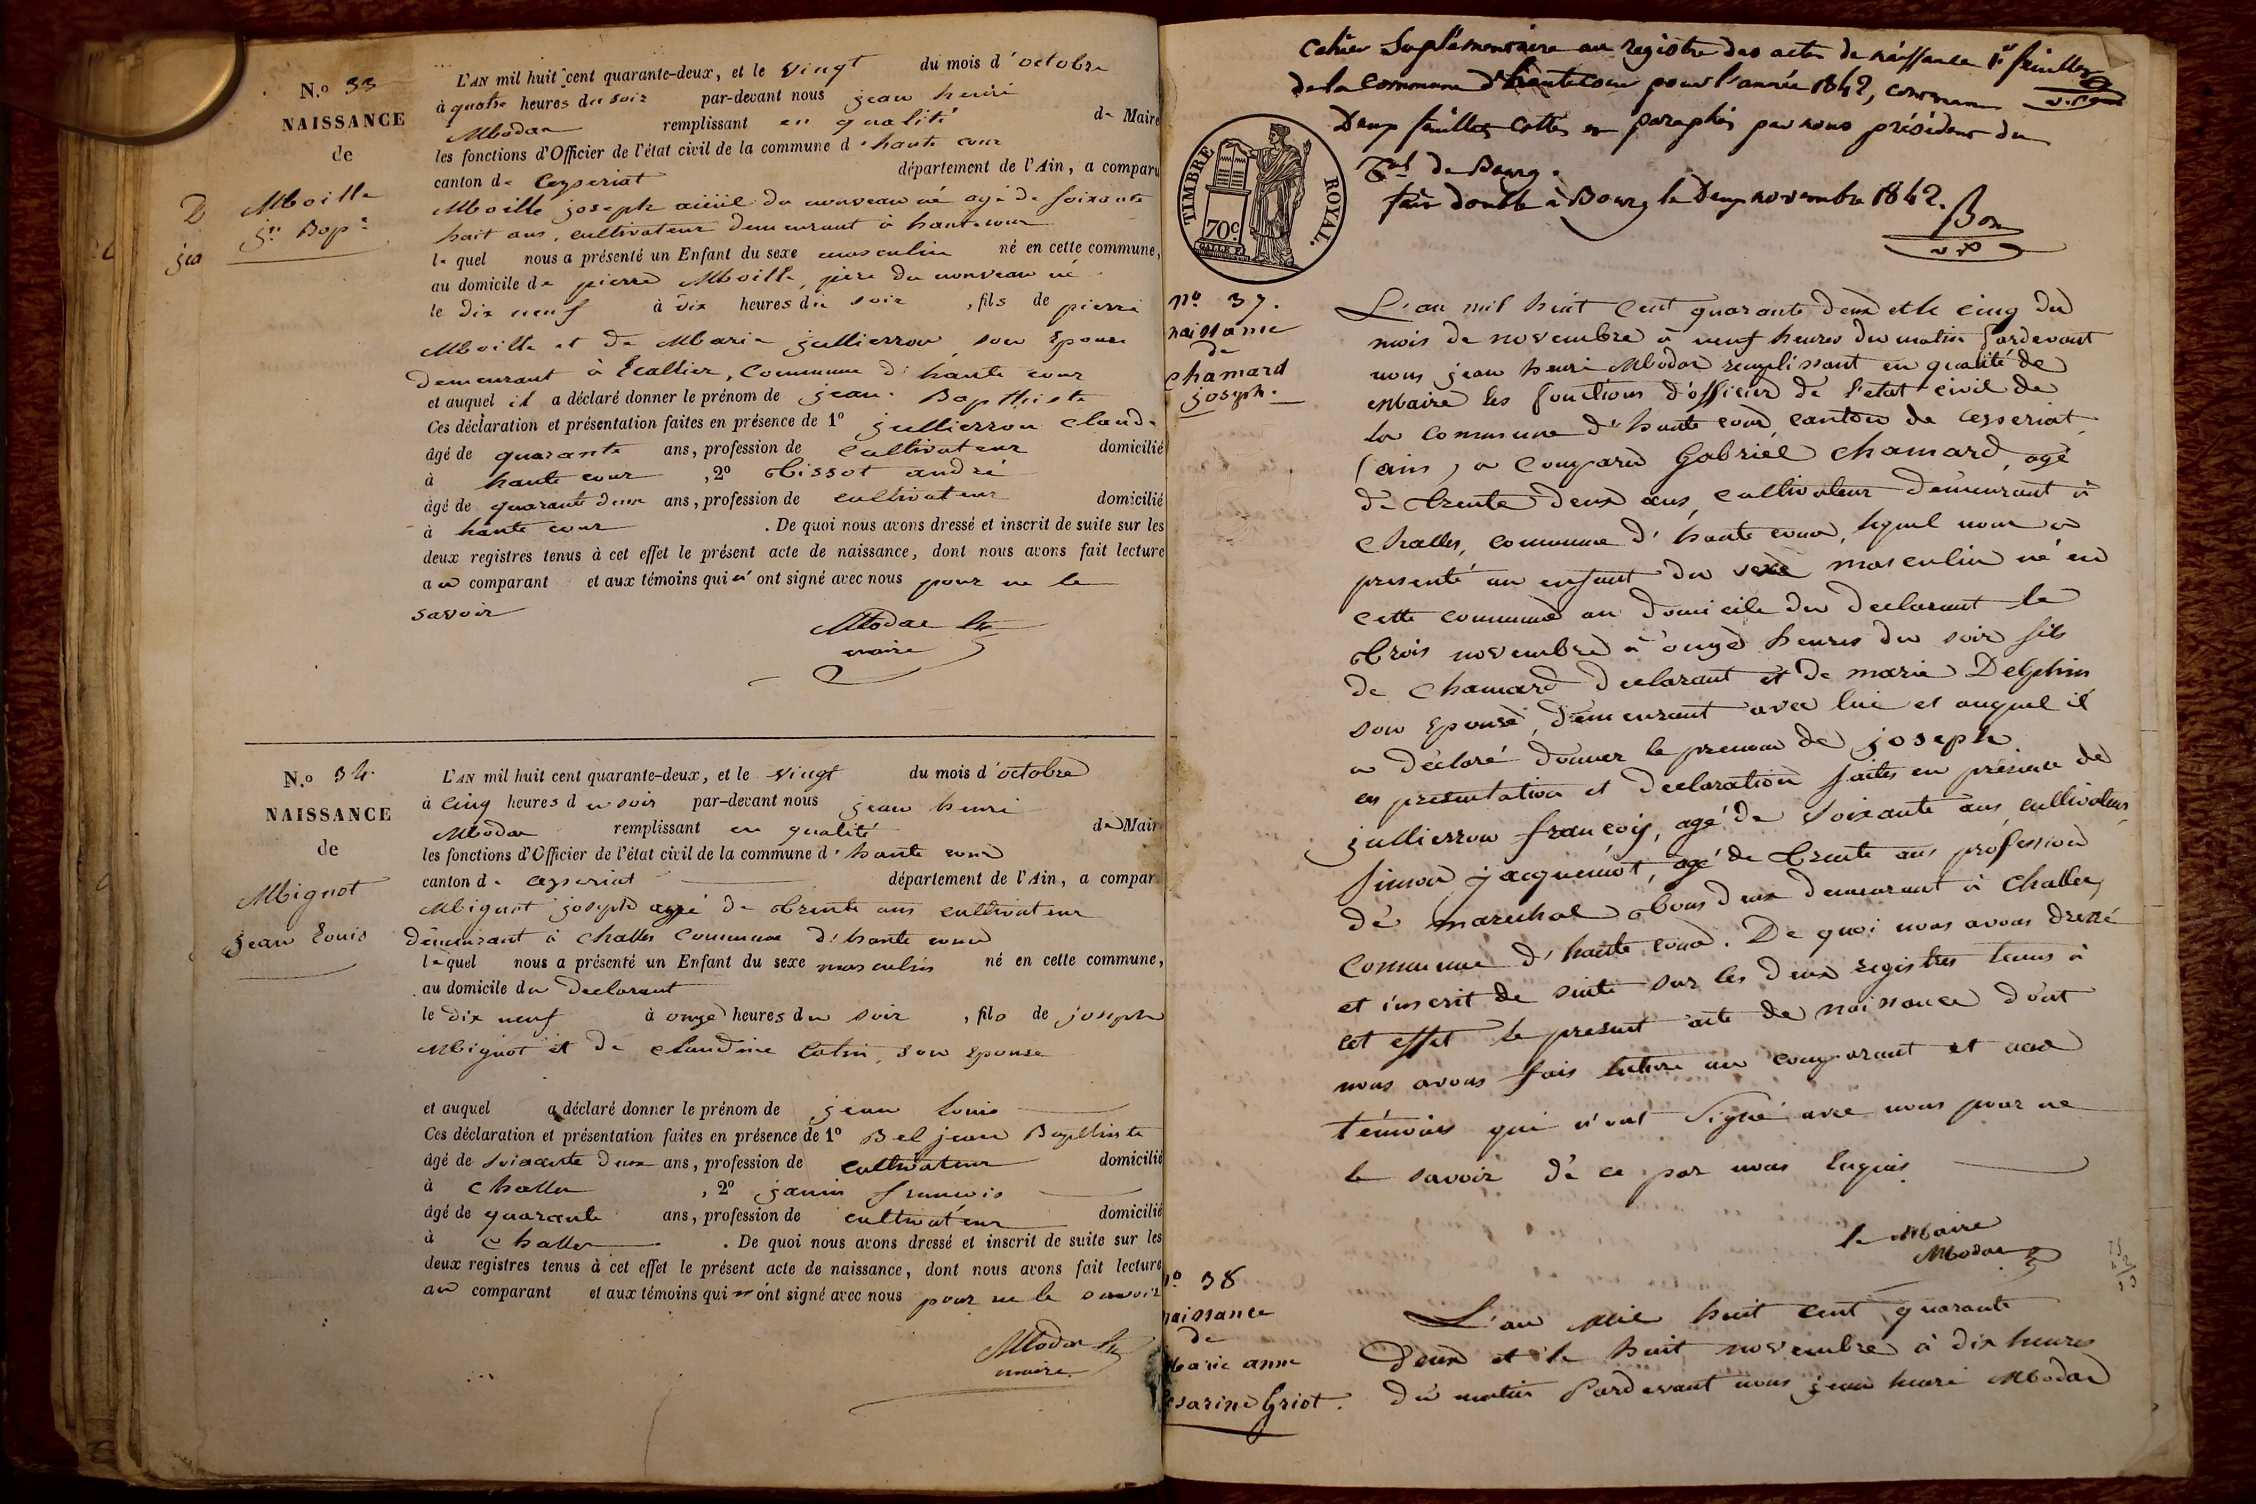 N.o 33
NAISSANCE
de
Moille
jn Bapte
L'AN mil huit cent quarante-deux, et le vingt du mois d'octobre
à quatre heures du soir par-devant nous jean henri
Modas remplissant en qualité de Maire
les fonctions d'Officier de l'état civil de la commune d'haute cour
canton de Ceyseriat département de l'Ain, a comparu
Moille joseph aiüil du nouveau né agé de soixante
huit ans, cultivateur demeurant à haute cour
lequel nous a présenté un Enfant du sexe masculin né en cette commune,
au domicile de pierre Moille, père du nouveau né
le dix neuf à dix heures du soir, fils de pierre
Moille et de Marie jullierron son Epouse
demeurant à Ecallier, Commune d'haute cour
et auquel il a déclaré donner le prénom de jean Bapthiste
Ces déclaration et présentation faites en présence de 1º jullierron Claude
âgé de quarante ans, profession de Cultivateur domicilié
à haute cour, 2º Bissot andré
âgé de quarante deux ans, profession de cultivateur domicilié
à haute cour. De quoi nous avons dressé et inscrit de suite sur les
deux registres tenus à cet effet le présent acte de naissance, dont nous avons fait lecture
au comparant et aux témoins qui n'ont signé avec nous pour ne le
savoir
Modas
maire
N.o 34
NAISSANCE
de
Mignot
jean Louis
L'AN mil huit cent quarante-deux, et le vingt du mois d'octobre
à cinq heures du soir par-devant nous jean henri
Modas remplissant en qualité de Maire
les fonctions d'Officier de l'état civil de la commune d'haute cour
canton de ceyseriat département de l'Ain, a comparu
Mignot joseph agé de trente ans cultivateur
demeurant à Challes Commune d'haute cour
lequel nous a présenté un Enfant du sexe masculin né en cette commune,
au domicile du declarant
le dix neuf à onze heures du soir, fils de joseph
Mignot et de claudine Colin, son Epouse
et auquel a déclaré donner le prénom de jean louis
Ces déclaration et présentation faites en présence de 1º Bel jean Bapthiste
âgé de soixante deux ans, profession de cultivateur domicilié
à Challes, 2º janin francois
âgé de quarante ans, profession de cultivateur domicilié
à Challes. De quoi nous avons dressé et inscrit de suite sur les
deux registres tenus à cet effet le présent acte de naissance, dont nous avons fait lecture
au comparant et aux témoins qui n'ont signé avec nous pour ne le savoir
Modas
maire
Cahier Suplémentaire au registre des actes de naissance 1er feuillet
de la Commune d'hautecour pour l'année 1842, contenant
Deux feuillets cottés et paraphés par nous président du
Tal de Bourg.
fait double à Bourg le Deux novembre 1842.
TIMBRE ROYAL.
70c.
nº 37.
naissance
de
Chamard
joseph.
L'an mil huit Cent quarante deux et le cinq du
mois de novembre à neuf heures du matin Pardevant
nous jean henri Modas remplissant en qualité de
Maire les fonctions d'officier de l'etat civil de
la commune d'haute cour, canton de Ceyseriat
(ain) a comparu Gabriel Chamard, agé
de trente deux ans, cultivateur demeurant à
Challes, commune d'haute cour, lequel nous a
presenté un enfant du sexe masculin né en
cette commune au domicile du declarant le
trois novembre à onze heures du soir fils
de Chamard declarant et de marie Delphin
son epouse, demeurant avec lui et auquel il
a déclaré donner le prenom de joseph
ces presentation et declaration faites en présence de
jullierron françois, agé de soixante ans, cultivateur,
Simon jacquemot, agé de trente ans profession
de marechal tous deux demeurant à Challes,
Commune d'haute cour. De quoi nous avons dressé
et inscrit de suite sur les deux registres tenus à
cet effet le present acte de naissance dont
nous avons fais lecture au comparant et aux
témoins qui n'ont signé avec nous pour ne
le savoir de ce par nous Enquis.
le Maire
Modas
nº 38
naissance
de
Marie anne
Cesarine Griot.
L'an Mil huit cent quarante
deux et le huit novembre à dix heures
du matin Pardevant nous jean henri Modas